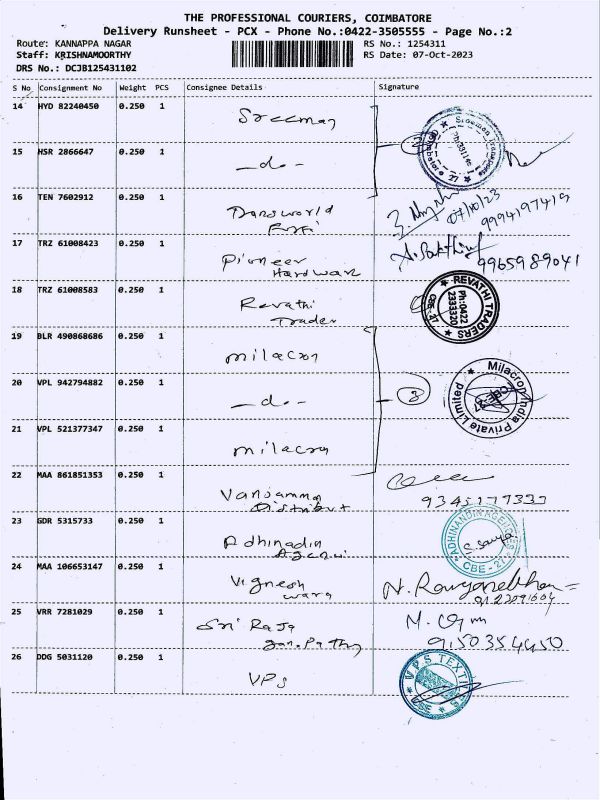 THE PROFESSIONAL COURIERS, COIMBATORE
Delivery Runsheet - PCX - Phone No.:0422-3505555 - Page No.:2
Route: KANNAPPA NAGAR RS No.: 1254311
Staff: KRISHNAMOORTHY RS Date: 07-Oct-2023
DRS No.: DCJB125431102
S No Consignment No Weight PCS Consignee Details Signature
14 HYD 82240450 0.250 1 Sreeman
15 HSR 2866647 0.250 1 -do-
16 TEN 7602912 0.250 1 07/10/23 9994197419
17 TRZ 61008423 0.250 1 Pioneer Hardware A. Sakthivel 9965989041
18 TRZ 61008583 0.250 1 Revathi Trader REVATHI TRADERS Ph:0422 2333320 CBE-27
19 BLR 490868686 0.250 1 milacron
20 VPL 942794882 0.250 1 -do- 3 Milacron India Private Limited CBE-27
21 VPL 521377347 0.250 1 milacron
22 MAA 861851353 0.250 1 Distribut
23 GDR 5315733 0.250 1 Adhinadin ADHINANDIN AGENCIES CBE-27
24 MAA 106653147 0.250 1 Vignesh
25 VRR 7281029 0.250 1 Sri Raja 9150354450
26 DDG 5031120 0.250 1 VPS V.P.S TEXTILES CBE